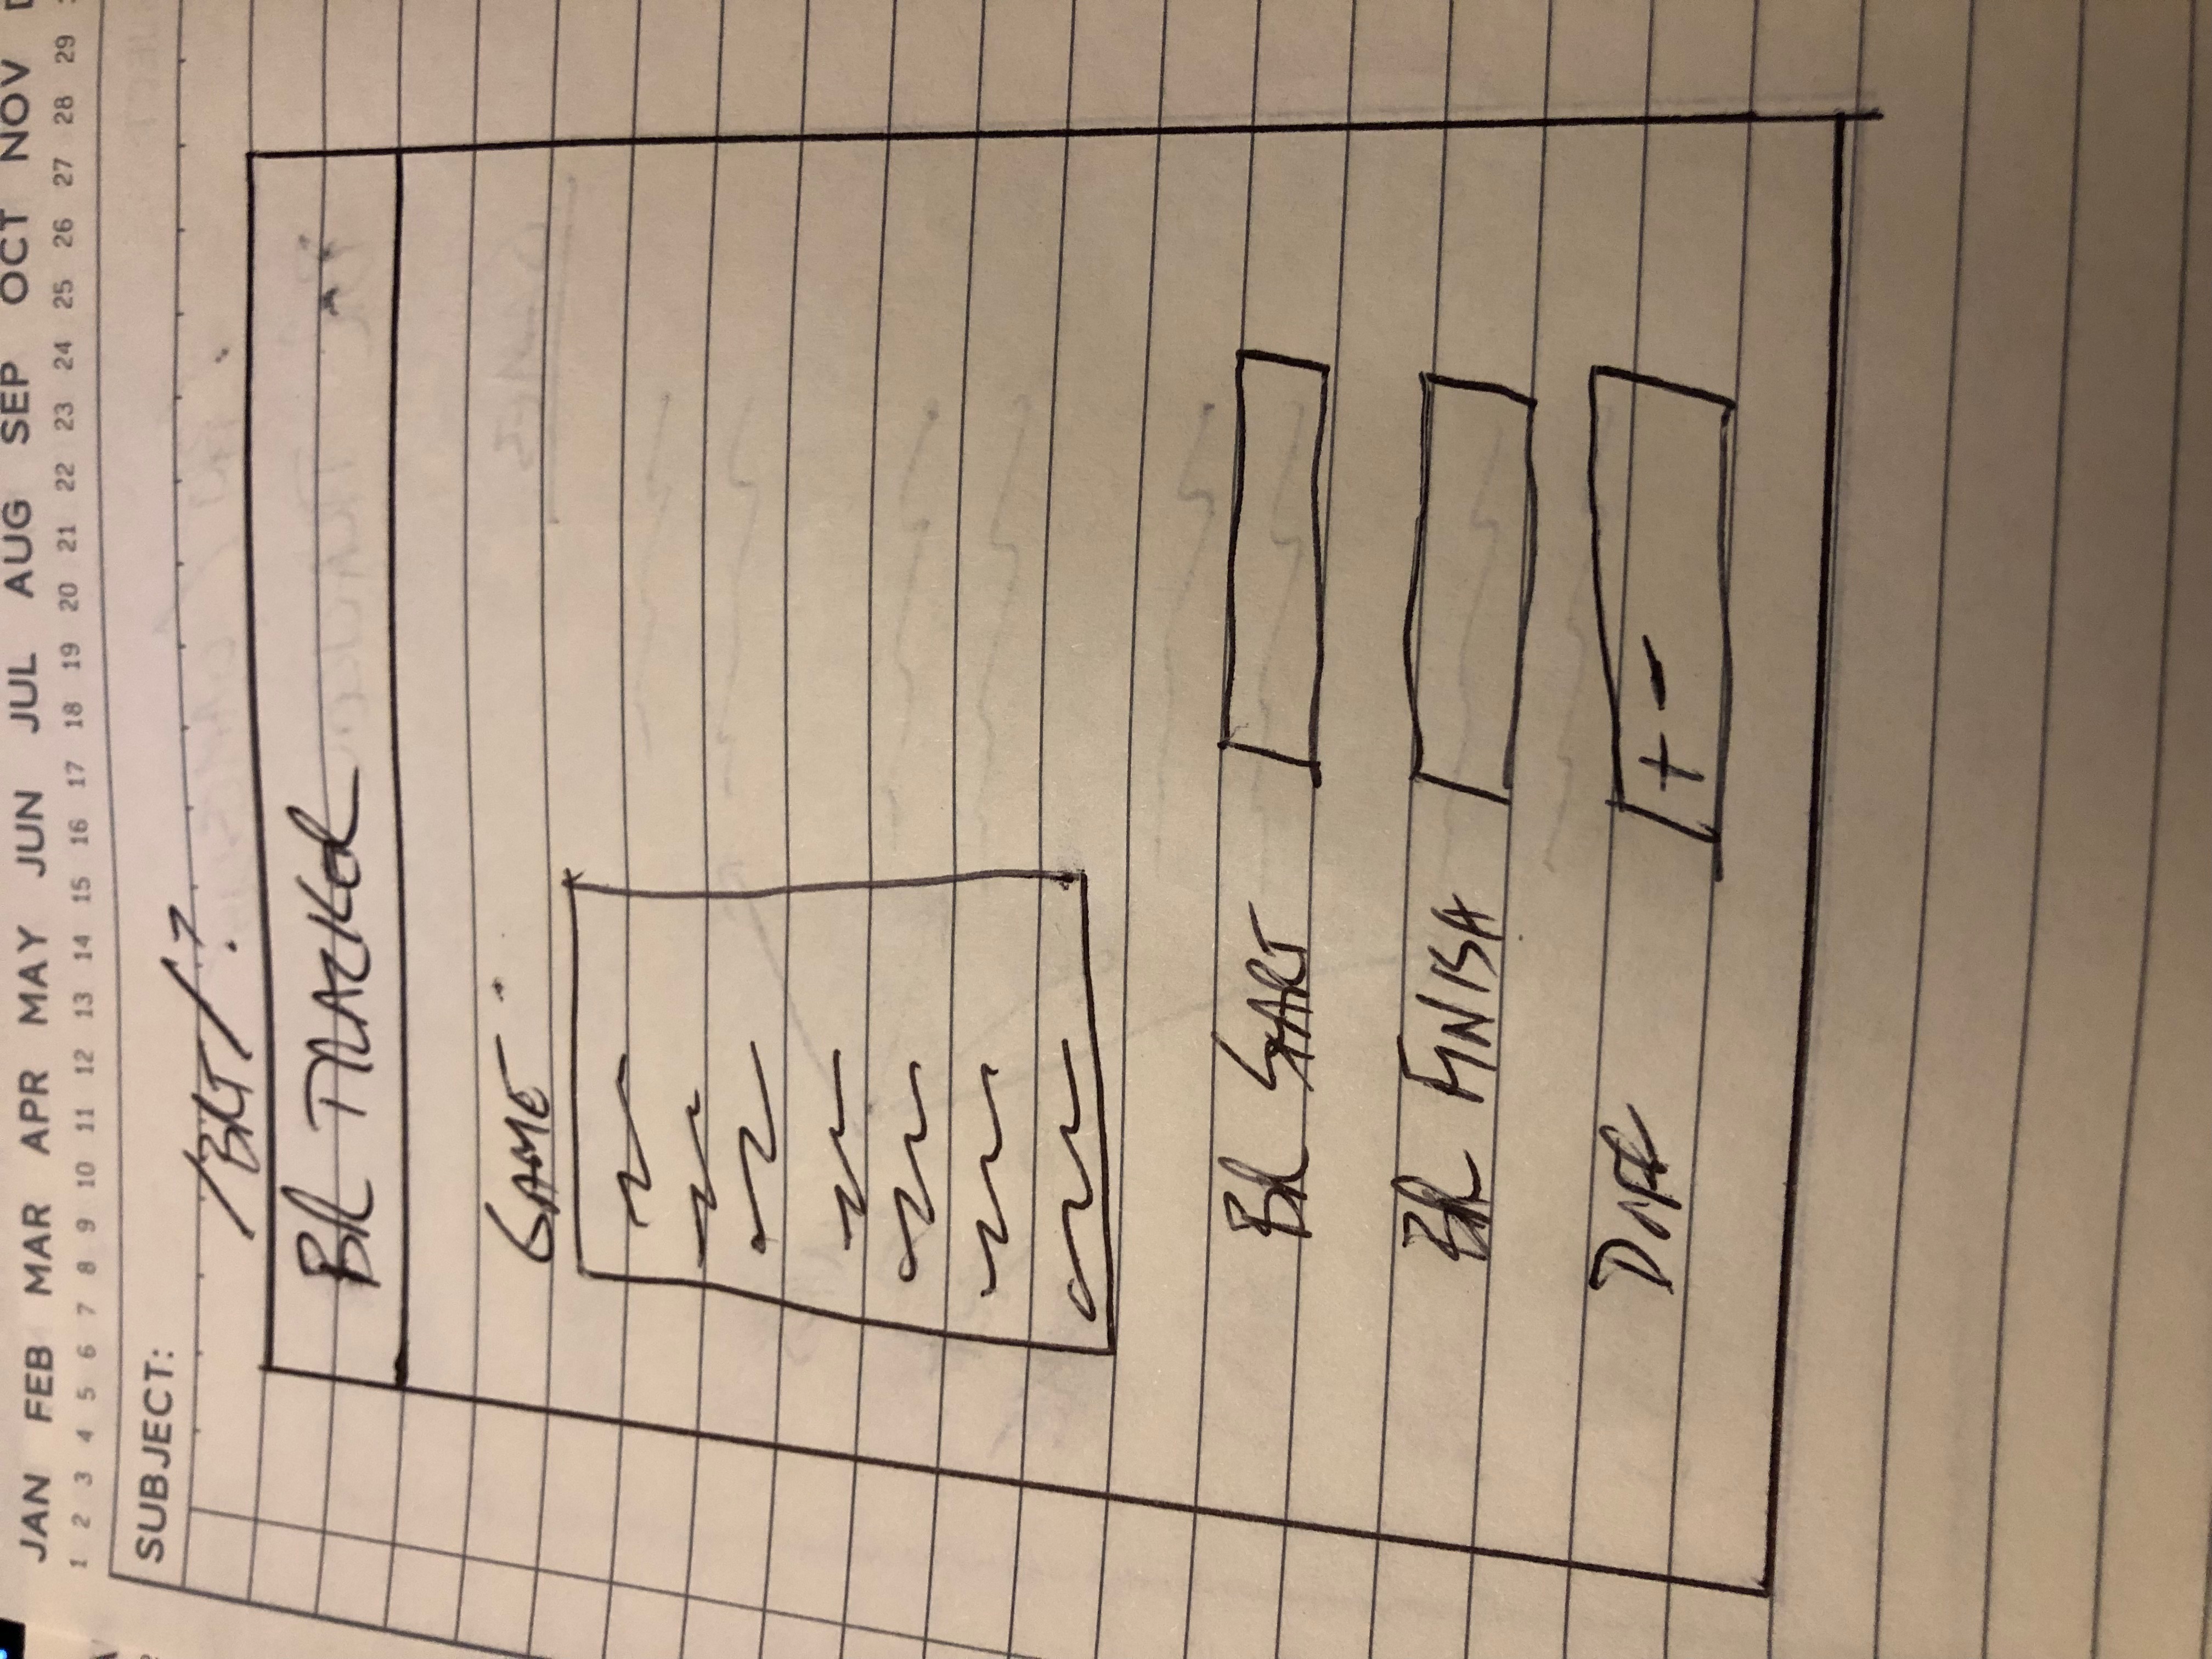 JAN FEB MAR APR MAY JUN JUL AUG SEP OCT NOV
1 2 3 4 5 6 7 8 9 10 11 12 13 14 15 16 17 18 19 20 21 22 23 24 25 26 27 28 29
SUBJECT:
/BRT/?
BR TRACKER
GAME
BR START
BR FINISH
DIFF
+ -